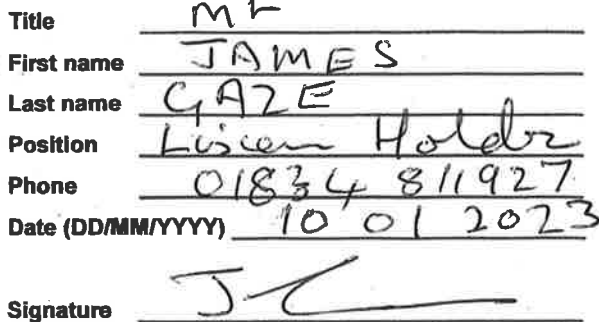 Title Mr
First name JAMES
Last name GAZE
Position Liscen Holder
Phone 01834 811927
Date (DD/MM/YYYY) 10 01 2023
Signature